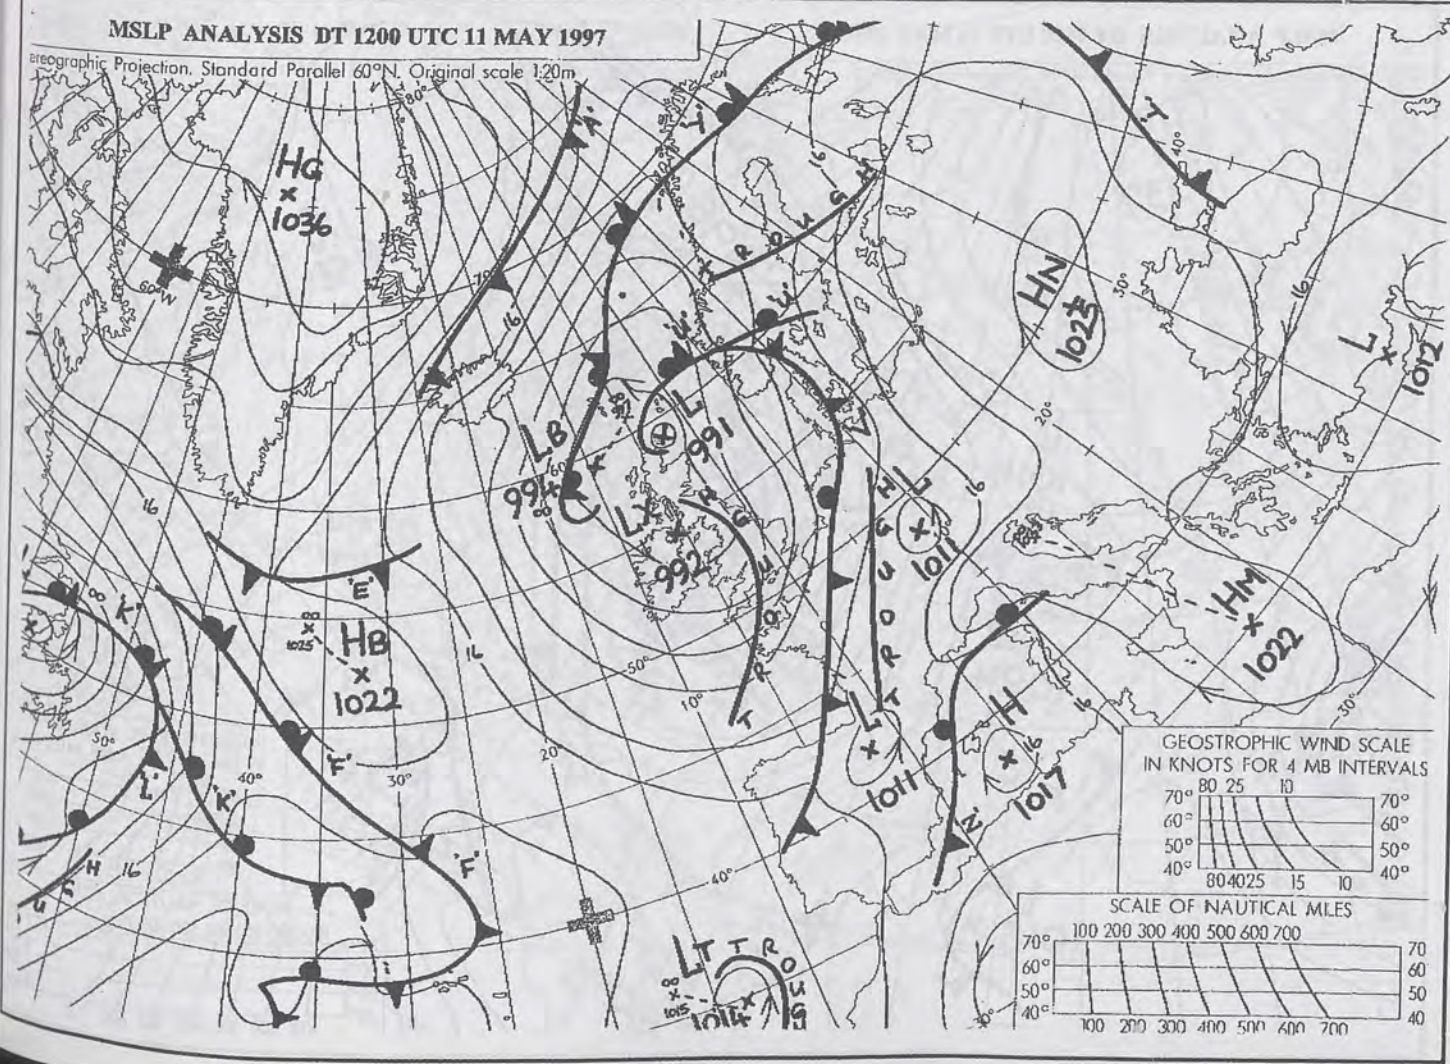 MSLP ANALYSIS DT 1200 UTC 11 MAY 1997
ereographic Projection. Standard Parallel 60°N. Original scale 1:20m
80°
"A"
HG
1036
60°W
70
16
"T"
40°
16
TROUGH
30°
HN
1025
16
L
1012
"U"
20°
L
991
LB
994
60°
00
LY
992
TROUGH
TROUGH
L
1011
16
HM
1022
30°
16
"E"
00
1025
HB
1022
16
50°
10°
20°
30°
40°
50°
00
"K"
"K"
"L"
16
"F"
"F"
L
1011
H
16
1017
"N"
40°
LT
TROUGH
00
1015
1014
30°
GEOSTROPHIC WIND SCALE
IN KNOTS FOR 4 MB INTERVALS
80 25 10
70° 70°
60° 60°
50° 50°
40° 40°
80 40 25 15 10
SCALE OF NAUTICAL MILES
100 200 300 400 500 600 700
70° 70
60° 60
50° 50
40° 40
100 200 300 400 500 600 700